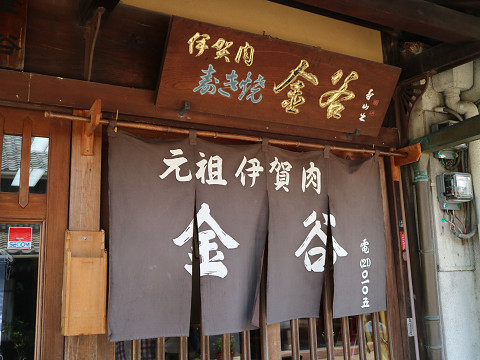 伊賀肉
寿き焼
金谷
元祖伊賀肉
金谷
電(21)〇一〇五
SECOM